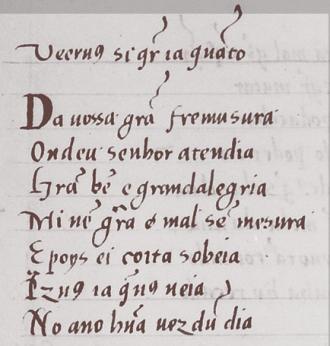 Veerug sigr̃ ia quãto
Da uossa grã fremusura
Ondeu senhor atendia
Grã bẽ e grandalegria
Mi nẽ grã e mal sẽ mesura
E poys ei coita sobeia
Izug ia q̃ug ueia
No ano hũa uez du dia